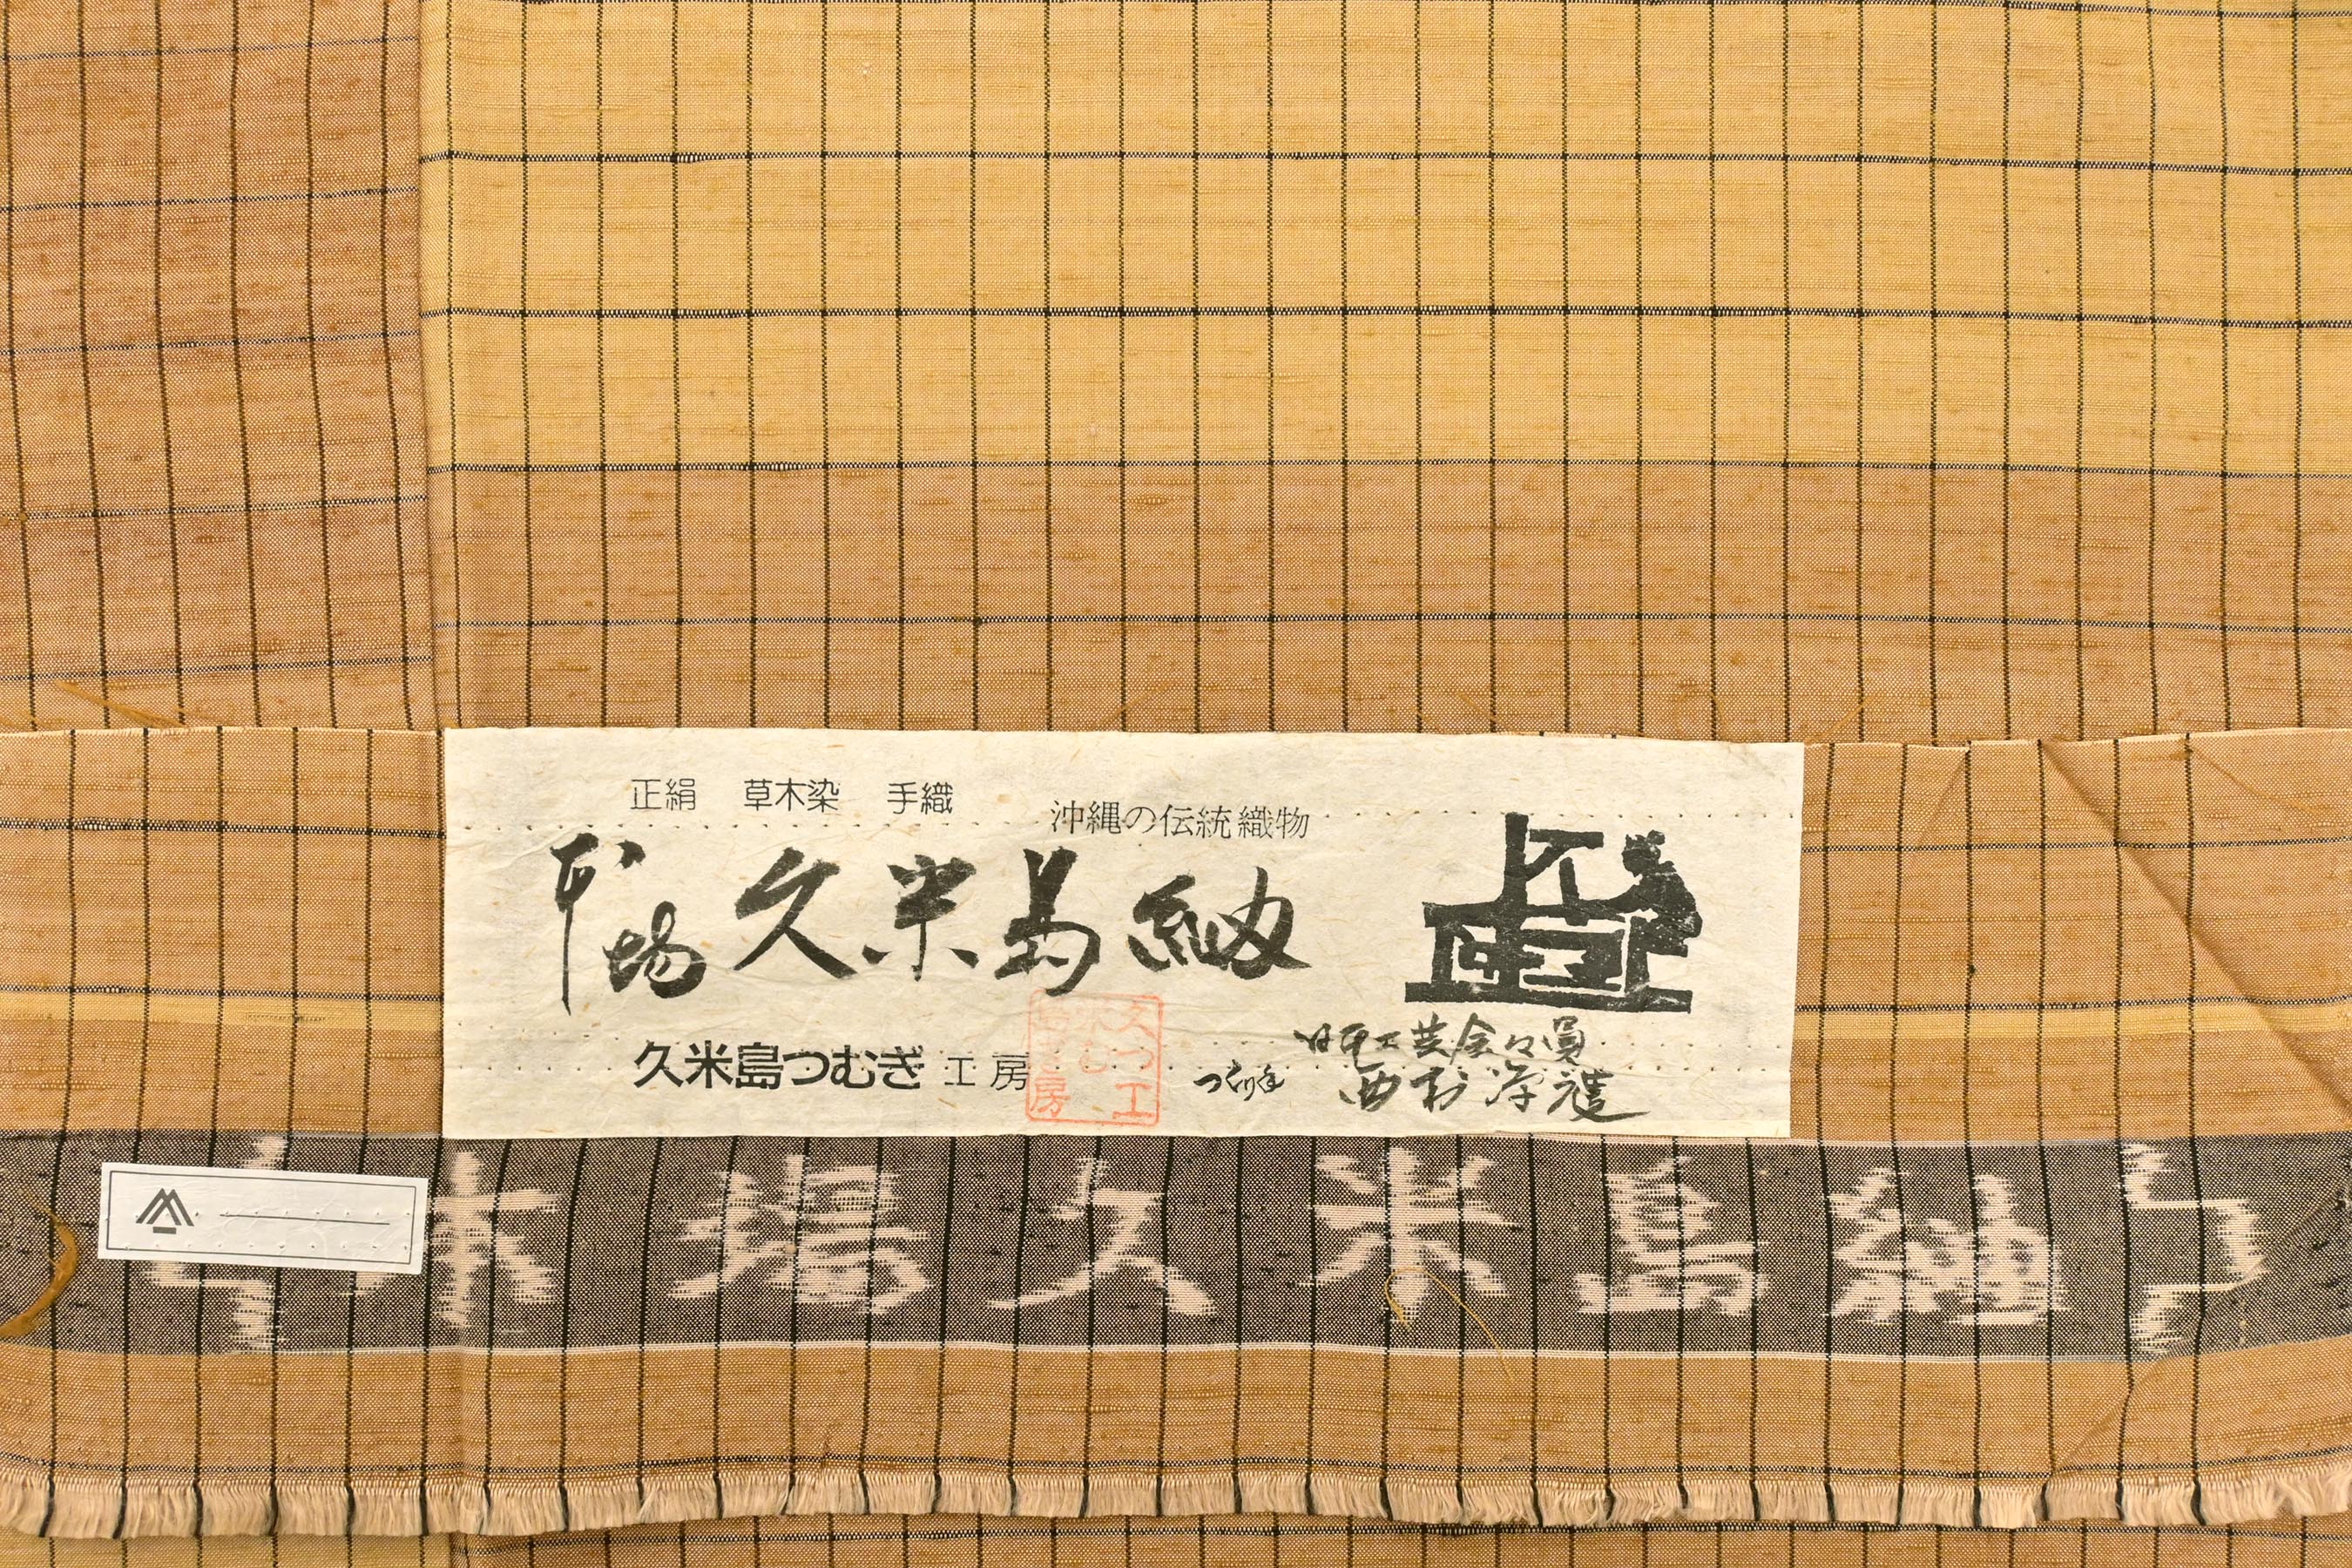 正絹 草木染 手織
沖縄の伝統織物
本場久米島紬
久米島つむぎ工房
久米島つむぎ工房
つくり手
日本工芸会々員
本場久米島紬